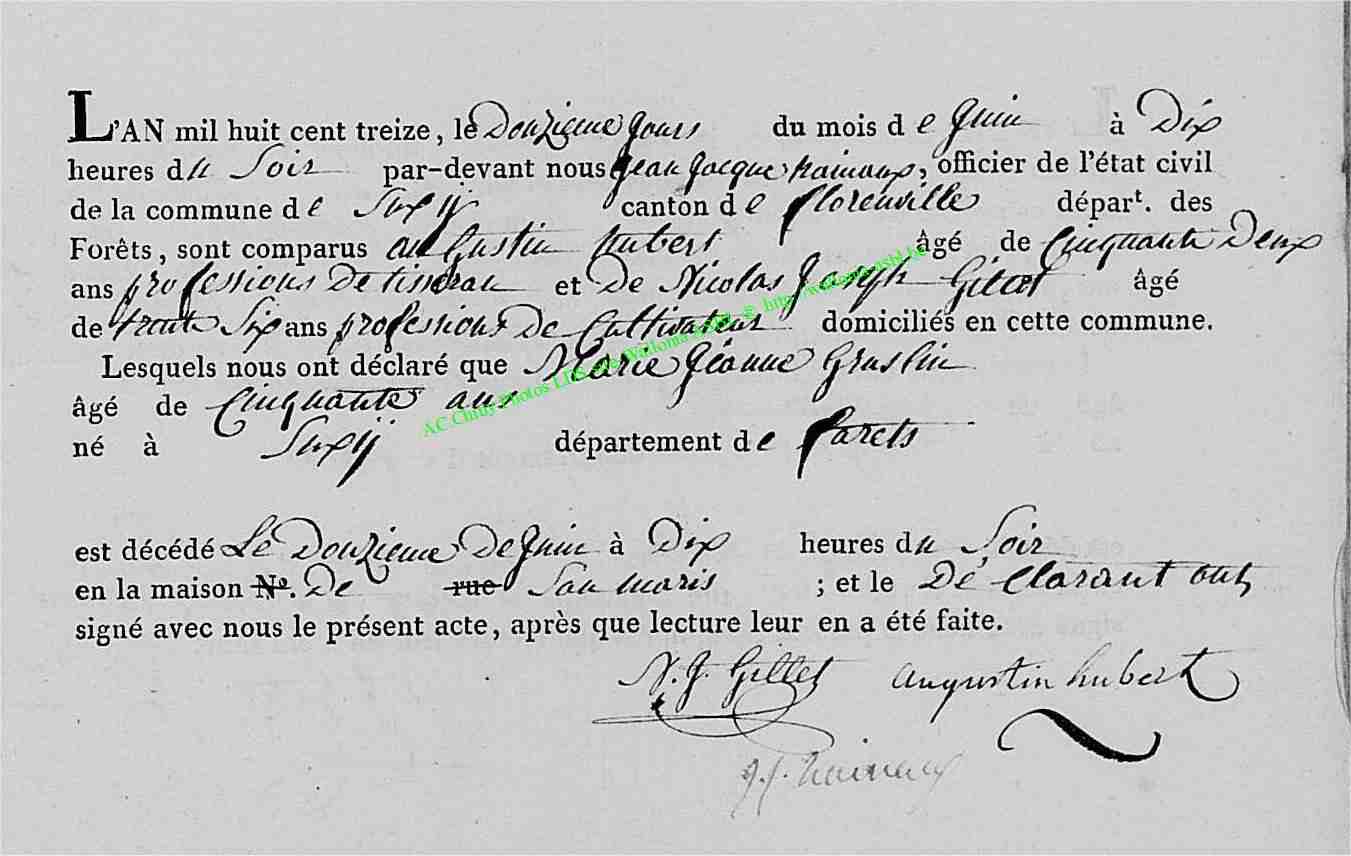 L'AN mil huit cent treize, le Douzieme Jours du mois de Juin à Dix
heures du Soir par-devant nous Jean Jacque hainaux, officier de l'état civil
de la commune de Suxÿ canton de florenville départ. des
Forêts, sont comparus augustin hubert âgé de Cinquante Deux
ans professions De tisseran et De Nicolas Joseph Gillet âgé
de trante Six ans professions De Cultivateur domiciliés en cette commune.
Lesquels nous ont déclaré que Marie Jéanne Graslin
âgé de Cinquante ans
né à Suxÿ département de farets
est décédé Le Douzieme De Juin à Dix heures du Soir
en la maison N°. De rue San maris ; et le De Clarant ont
signé avec nous le présent acte, après que lecture leur en a été faite.
N. J. Gillet augustin hubert
J. J. hainaux
AC Chiny Photos LDS